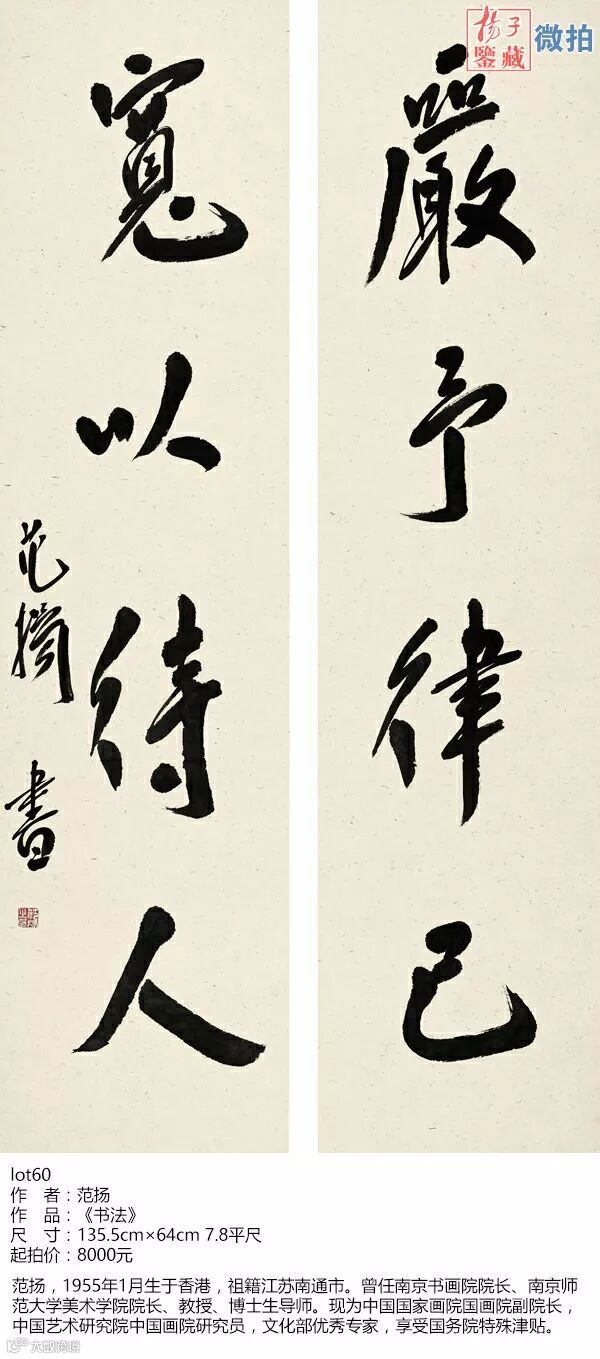 揚子
鑒藏
微拍
嚴予律己
寬以待人
范揚書
lot60
作 者：范扬
作 品：《书法》
尺 寸：135.5cm×64cm 7.8平尺
起拍价：8000元
范扬，1955年1月生于香港，祖籍江苏南通市。曾任南京书画院院长、南京师
范大学美术学院院长、教授、博士生导师。现为中国国家画院国画院副院长，
中国艺术研究院中国画院研究员，文化部优秀专家，享受国务院特殊津贴。
大数跨境